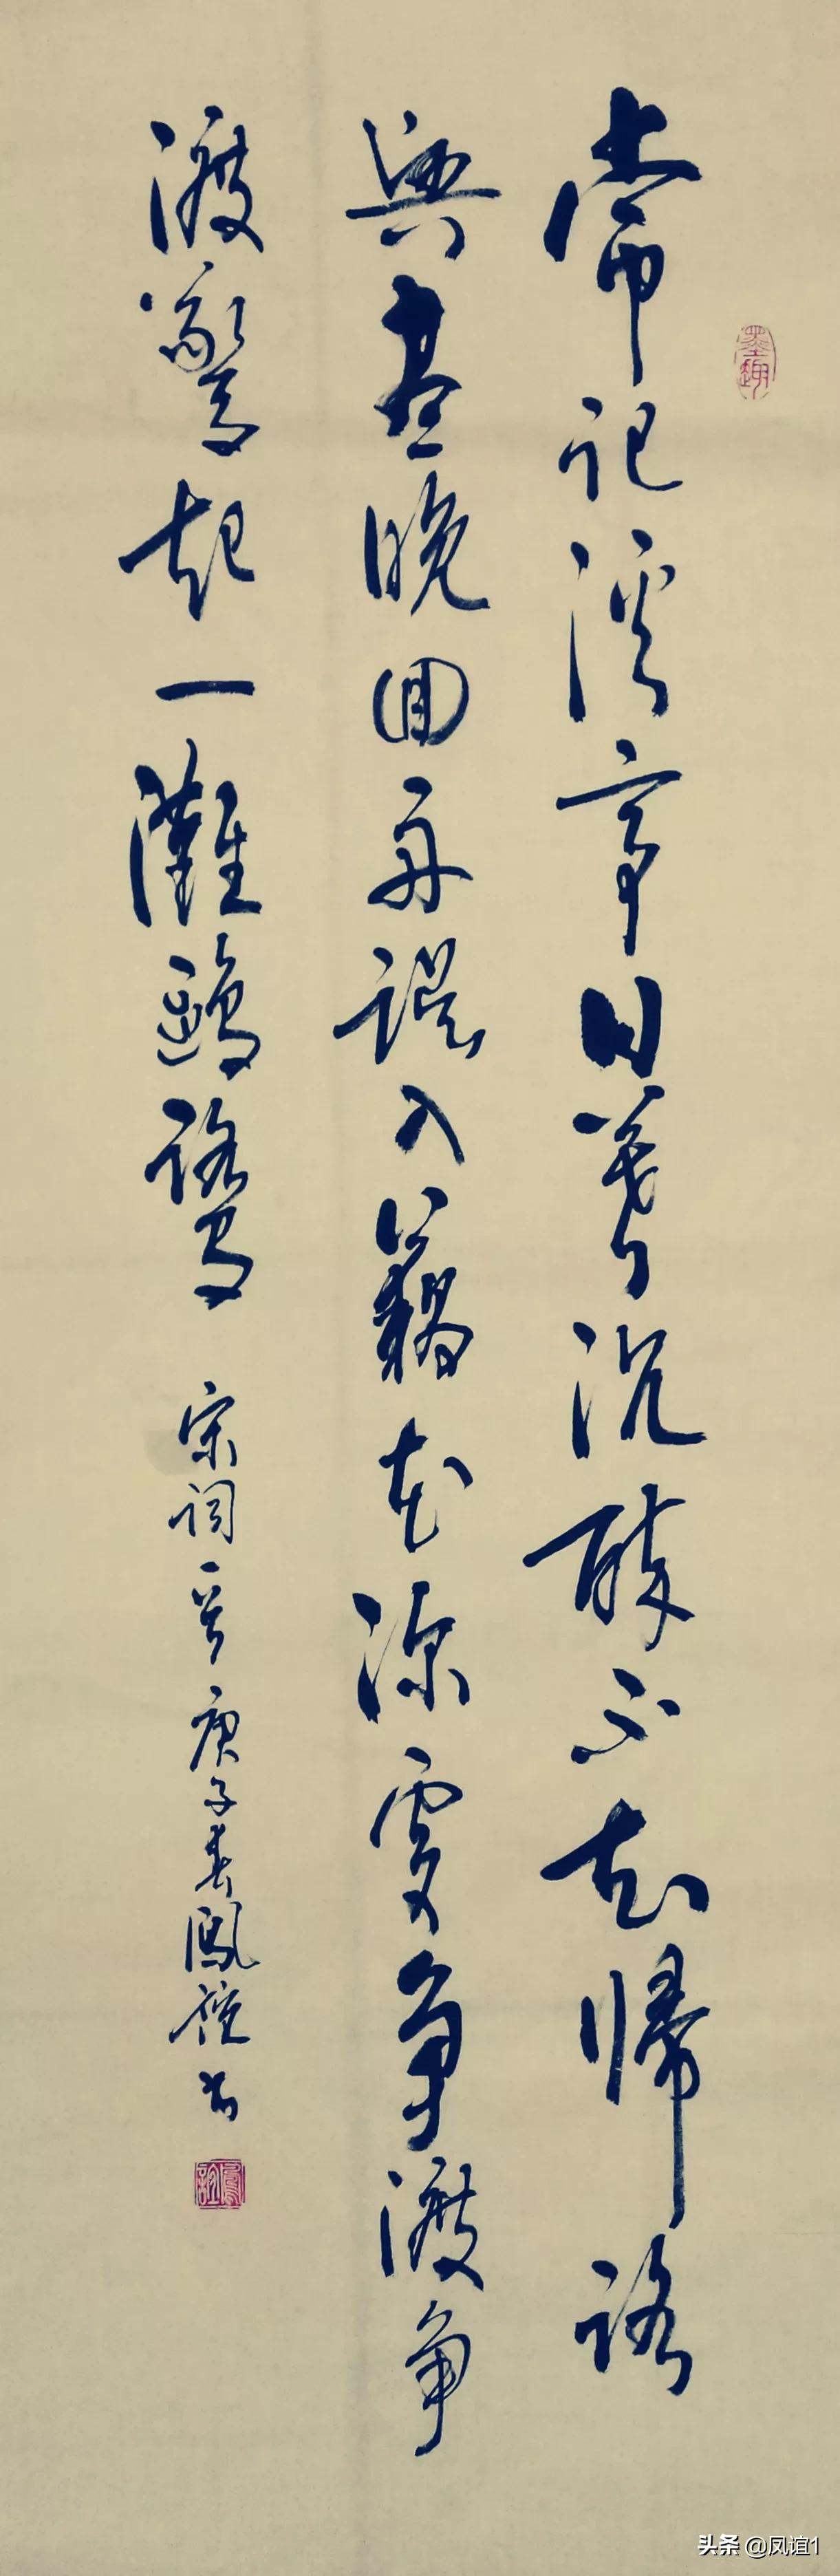 墨趣
常記溪亭日暮沉醉不知歸路
興盡晚回舟誤入藕花深處争渡争
渡驚起一灘鷗鷺 宋詞一首 庚子春鳳誼书
鳳誼
头条 @凤谊1